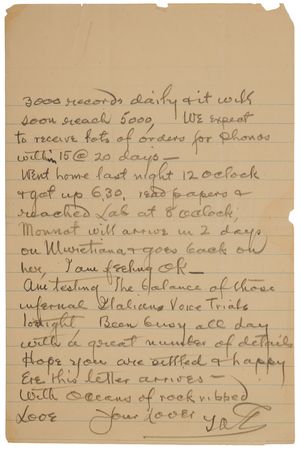 3000 records daily & it will
soon reach 5000, We expect
to receive lots of orders for Phonos
within 15 @ 20 days —
Went home last night 12 oclock
& got up 6.30, read papers &
reached Lab at 8 oclock,
Monnot will arrive in 2 days
on Muretiana & goes back on
her, I am feeling OK —
Am testing The balance of those
infernal Italian Voice Trials
tonight Been busy all day
with a great number of details
Hope you are settled & happy
Ere this letter arrives —
With Oceans of rock ribbed
Love Your lover